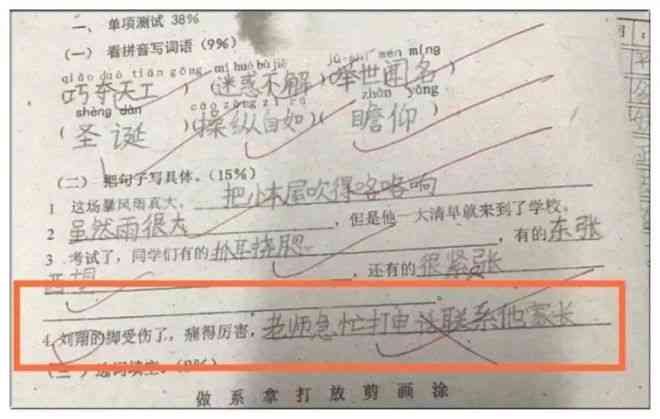 一、单项测试 38%
(一) 看拼音写词语 (9%)
qiǎo duó tiān gōng mí huò bù jiě jǔ shì wén míng
巧夺天工 (迷惑不解) (举世闻名)
shèng dàn cāo zòng zì rú zhān yǎng
(圣诞) (操纵自如) (瞻仰)
(二) 把句子写具体。(15%)
1 这场暴风雨真大,把小木屋吹得咯咯响
2 虽然雨很大,但是他一大清早就来到了学校。
3 考试了,同学们有的抓耳挠腮,有的东张
西望,还有的很紧张
4.刘翔的脚受伤了,痛得厉害,老师急忙打电话联系他家长
(三) 选词填空。(8%)
做 系 拿 打 放 剪 画 涂